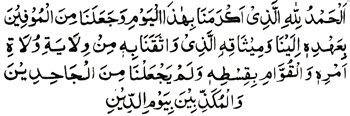 اَلْحَمْدُ لِلّٰهِ الَّذِىْ اَكْرَمَنَا بِهٰذَا الْيَوْمِ وَجَعَلَنَا مِنَ الْمُوْفِيْنَ
بِعَهْدِهٖ اِلَيْنَا وَمِيْثَاقِهِ الَّذِىْ وَاثَقَنَا بِهٖ مِنْ وِلَايَةِ وُلَاةِ
اَمْرِهٖ وَالْقُوَّامِ بِقِسْطِهٖ وَلَمْ يَجْعَلْنَا مِنَ الْجَاحِدِيْنَ
وَالْمُكَذِّبِيْنَ بِيَوْمِ الدِّيْنِ